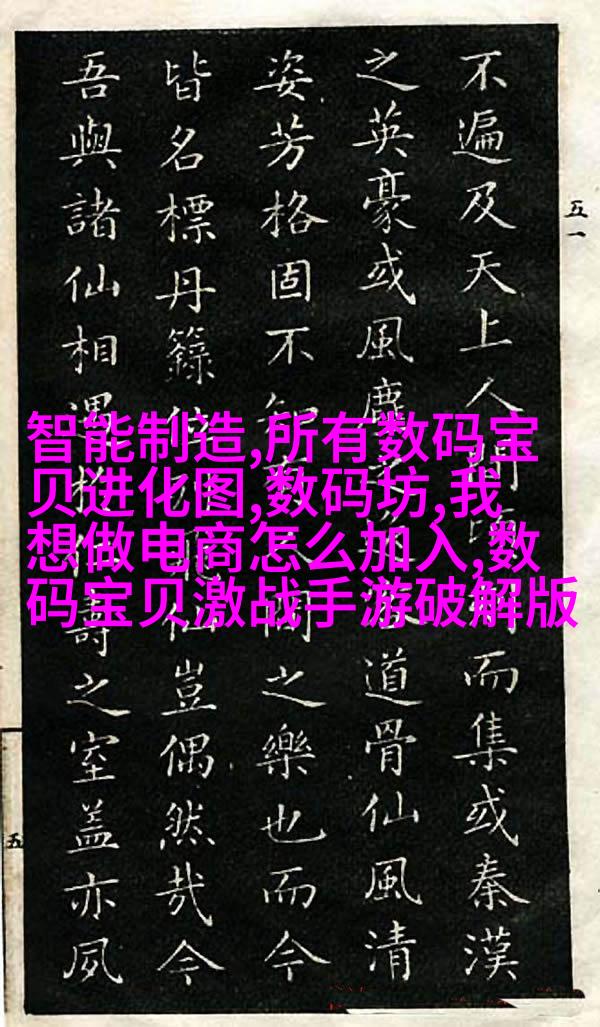 不遍及天上人間而集或秦漢
之英豪或風塵道骨仙風清
姿芳格固不知人間之樂也而今
皆名標丹籙位仙豈偶然哉今
吾與諸仙相遇於仁壽之室蓋亦夙
五一
五
智能制造,所有数码宝
贝进化图,数码坊,我
想做电商怎么加入,数
码宝贝激战手游破解版